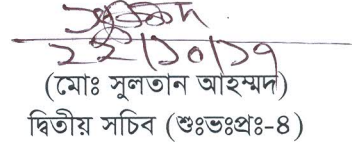 ২২/১০/১৭
(মোঃ সুলতান আহম্মদ)
দ্বিতীয় সচিব (শুঃভঃপ্রঃ-৪)